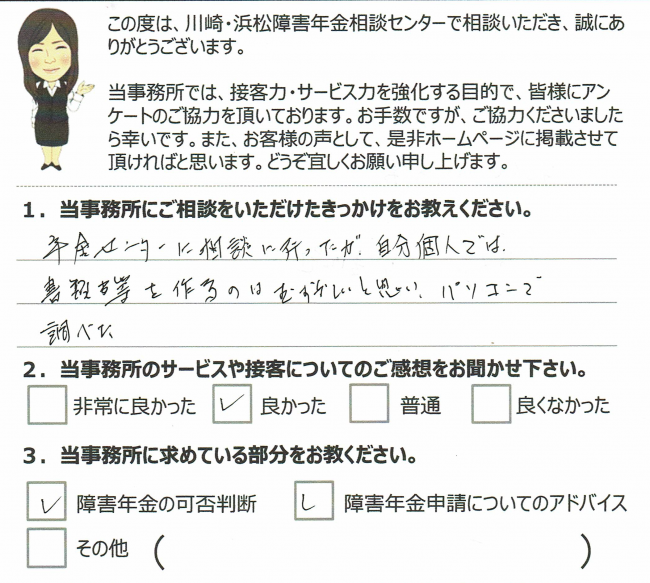 この度は、川崎・浜松障害年金相談センターで相談いただき、誠にあ
りがとうございます。
当事務所では、接客力・サービス力を強化する目的で、皆様にアン
ケートのご協力を頂いております。お手数ですが、ご協力くださいました
ら幸いです。また、お客様の声として、是非ホームページに掲載させて
頂ければと思います。どうぞ宜しくお願い申し上げます。
1．当事務所にご相談をいただけたきっかけをお教えください。
年金センターに相談に行ったが、自分個人では、
書類等を作るのはむずかしいと思い、パソコンで
調べた
2．当事務所のサービスや接客についてのご感想をお聞かせ下さい。
非常に良かった 良かった 普通 良くなかった
3．当事務所に求めている部分をお教ください。
障害年金の可否判断 障害年金申請についてのアドバイス
その他 （ ）